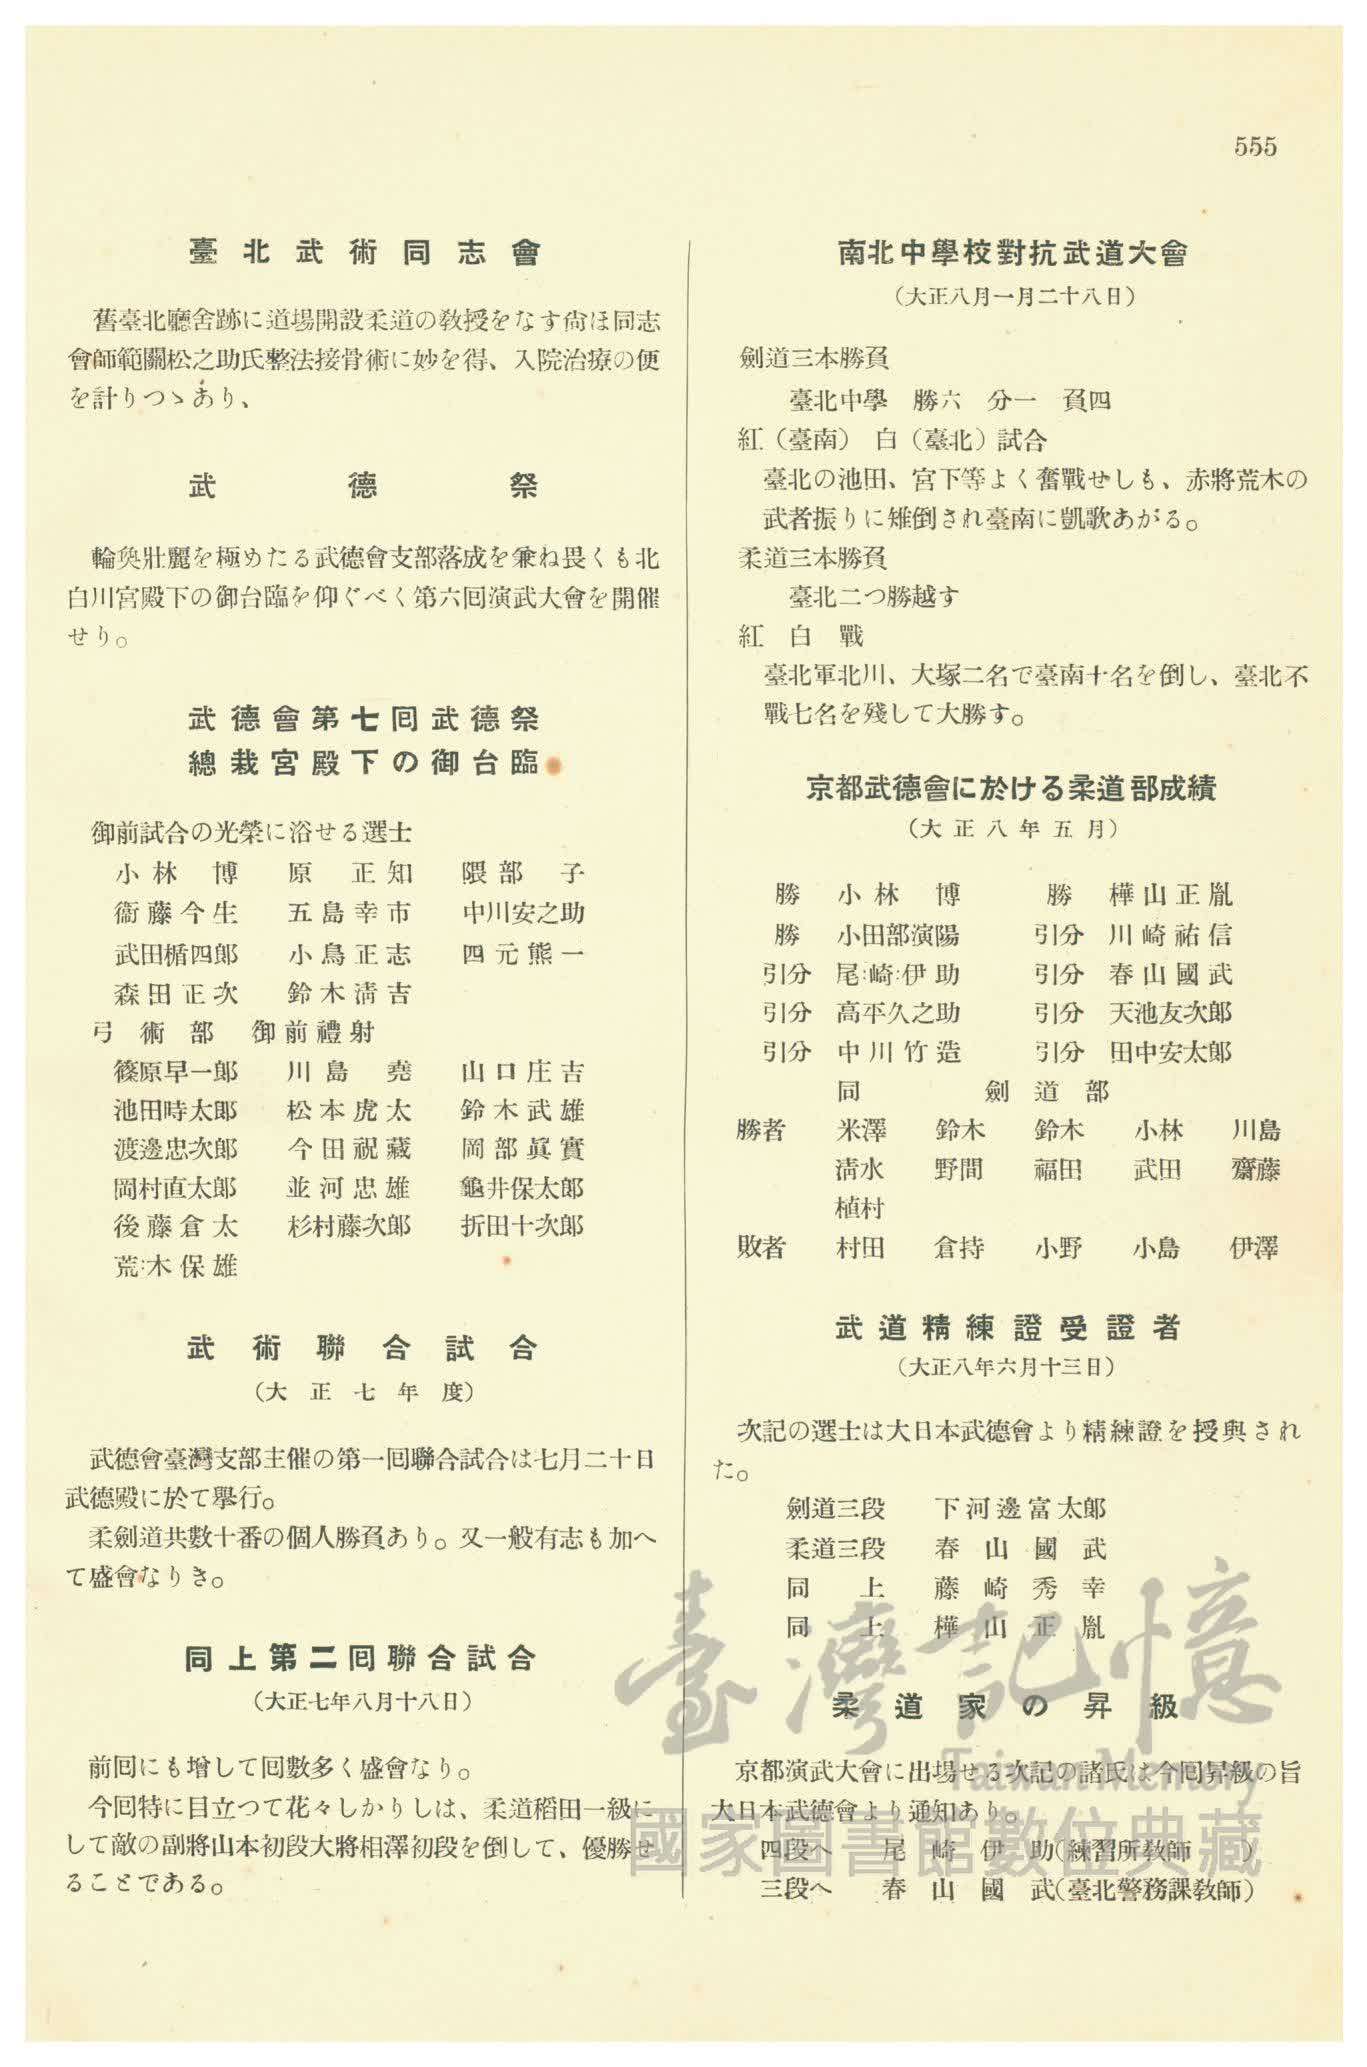 555
臺北武術同志會
舊臺北廳舍跡に道場開設柔道の教授をなす尙ほ同志
會師範關松之助氏整法接骨術に妙を得、入院治療の便
を計りつゝあり、
武德祭
輪奐壯麗を極めたる武德會支部落成を兼ね畏くも北
白川宮殿下の御台臨を仰ぐべく第六回演武大會を開催
せり。
武德會第七回武德祭
總裁宮殿下の御台臨
御前試合の光榮に浴せる選士
小林博 原正知 隈部子
衞藤今生 五島幸市 中川安之助
武田楯四郎 小鳥正志 四元熊一
森田正次 鈴木淸吉
弓術部 御前禮射
篠原早一郎 川島堯 山口庄吉
池田時太郎 松本虎太 鈴木武雄
渡邊忠次郎 今田祝藏 岡部眞實
岡村直太郎 並河忠雄 龜井保太郎
後藤倉太 杉村藤次郎 折田十次郎
荒木保雄
武術聯合試合
(大正七年度)
武德會臺灣支部主催の第一回聯合試合は七月二十日
武德殿に於て擧行。
柔劍道共數十番の個人勝負あり。又一般有志も加へ
て盛會なりき。
同上第二回聯合試合
(大正七年八月十八日)
前回にも增して回數多く盛會なり。
今回特に目立つて花々しかりしは、柔道稻田一級に
して敵の副將山本初段大將相澤初段を倒して、優勝せ
ることである。
南北中學校對抗武道大會
(大正八月一月二十八日)
劍道三本勝負
臺北中學 勝六 分一 負四
紅(臺南) 白(臺北)試合
臺北の池田、宮下等よく奮戰せしも、赤將荒木の
武者振りに雉倒され臺南に凱歌あがる。
柔道三本勝負
臺北二つ勝越す
紅白戰
臺北軍北川、大塚二名で臺南十名を倒し、臺北不
戰七名を殘して大勝す。
京都武德會に於ける柔道部成績
(大正八年五月)
勝 小林博 勝 樺山正胤
勝 小田部演陽 引分 川崎祐信
引分 尾崎伊助 引分 春山國武
引分 高平久之助 引分 天池友次郎
引分 中川竹造 引分 田中安太郎
同 劍道部
勝者 米澤 鈴木 鈴木 小林 川島
淸水 野間 福田 武田 齋藤
植村
敗者 村田 倉持 小野 小島 伊澤
武道精練證受證者
(大正八年六月十三日)
次記の選士は大日本武德會より精練證を授與され
た。
劍道三段 下河邊富太郎
柔道三段 春山國武
同上 藤崎秀幸
同上 樺山正胤
柔道家の昇級
京都演武大會に出場せる次記の諸氏は今回昇級の旨
大日本武德會より通知あり。
四段へ 尾崎伊助(練習所教師)
三段へ 春山國武(臺北警務課教師)
臺灣記憶
Taiwan Memory
國家圖書館數位典藏